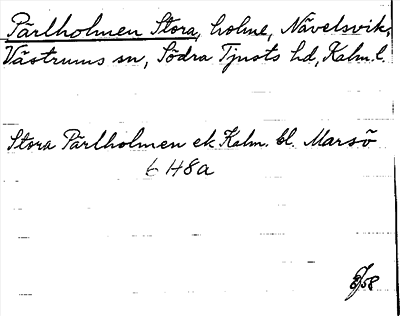 Pärlholmen Stora, holme, Nävelsvik,
Västrums sn, Södra Tjusts hd, Kalm. l.
Stora Pärlholmen ek Kalm. bl. Marsö
6 H8a